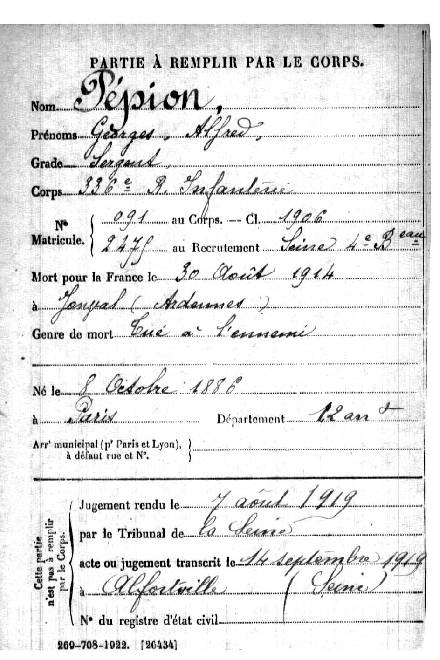 PARTIE À REMPLIR PAR LE CORPS.
Nom Pépion,
Prénoms Georges, Alfred,
Grade Sergent
Corps 336e R. Infanterie
N° Matricule. 091 au Corps. — Cl. 1906
2275 au Recrutement Seine 4e Beau
Mort pour la France le 30 Août 1914
à (Ardennes)
Genre de mort Tué à l'ennemi
Né le 8 Octobre 1886
à Paris Département 12 arrt
Arrt municipal (pr Paris et Lyon),
à défaut rue et N°.
Cette partie n'est pas à remplir par le Corps.
Jugement rendu le 7 août 1919
par le Tribunal de la Seine
acte ou jugement transcrit le 14 septembre 1919
à Alfortville (Seine)
N° du registre d'état civil
269-708-1922. [26434]